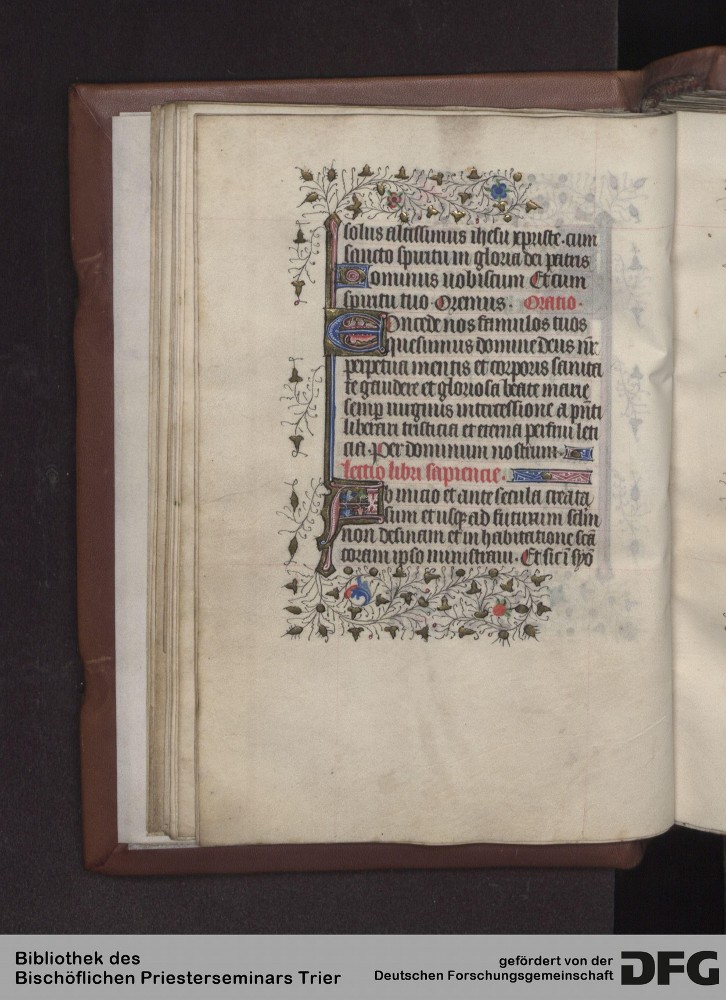 solus altissimus ihesu xpriste. cum
sancto spiritu in gloria dei patris
Dominus uobiscum Et cum
spiritu tuo. Oremus. Oratio.
COncede nos famulos tuos
quesumus domine deus nr̄
perpetua mentis et corporis sanita
te gaudere et gloriosa beate marie
semp uirginis intercessione a p̄nti
liberari tristicia et eterna perfrui leti
cia. Per dominum nostrum.
lectio libri sapiencie.
Ab inicio et ante secula creata
sum et usqꝫ ad futurum sclm
non desinam et in habitatione scā
coram ipso ministraui. Et sic ī syō
Bibliothek des
Bischöflichen Priesterseminars Trier
gefördert von der
Deutschen Forschungsgemeinschaft
DFG